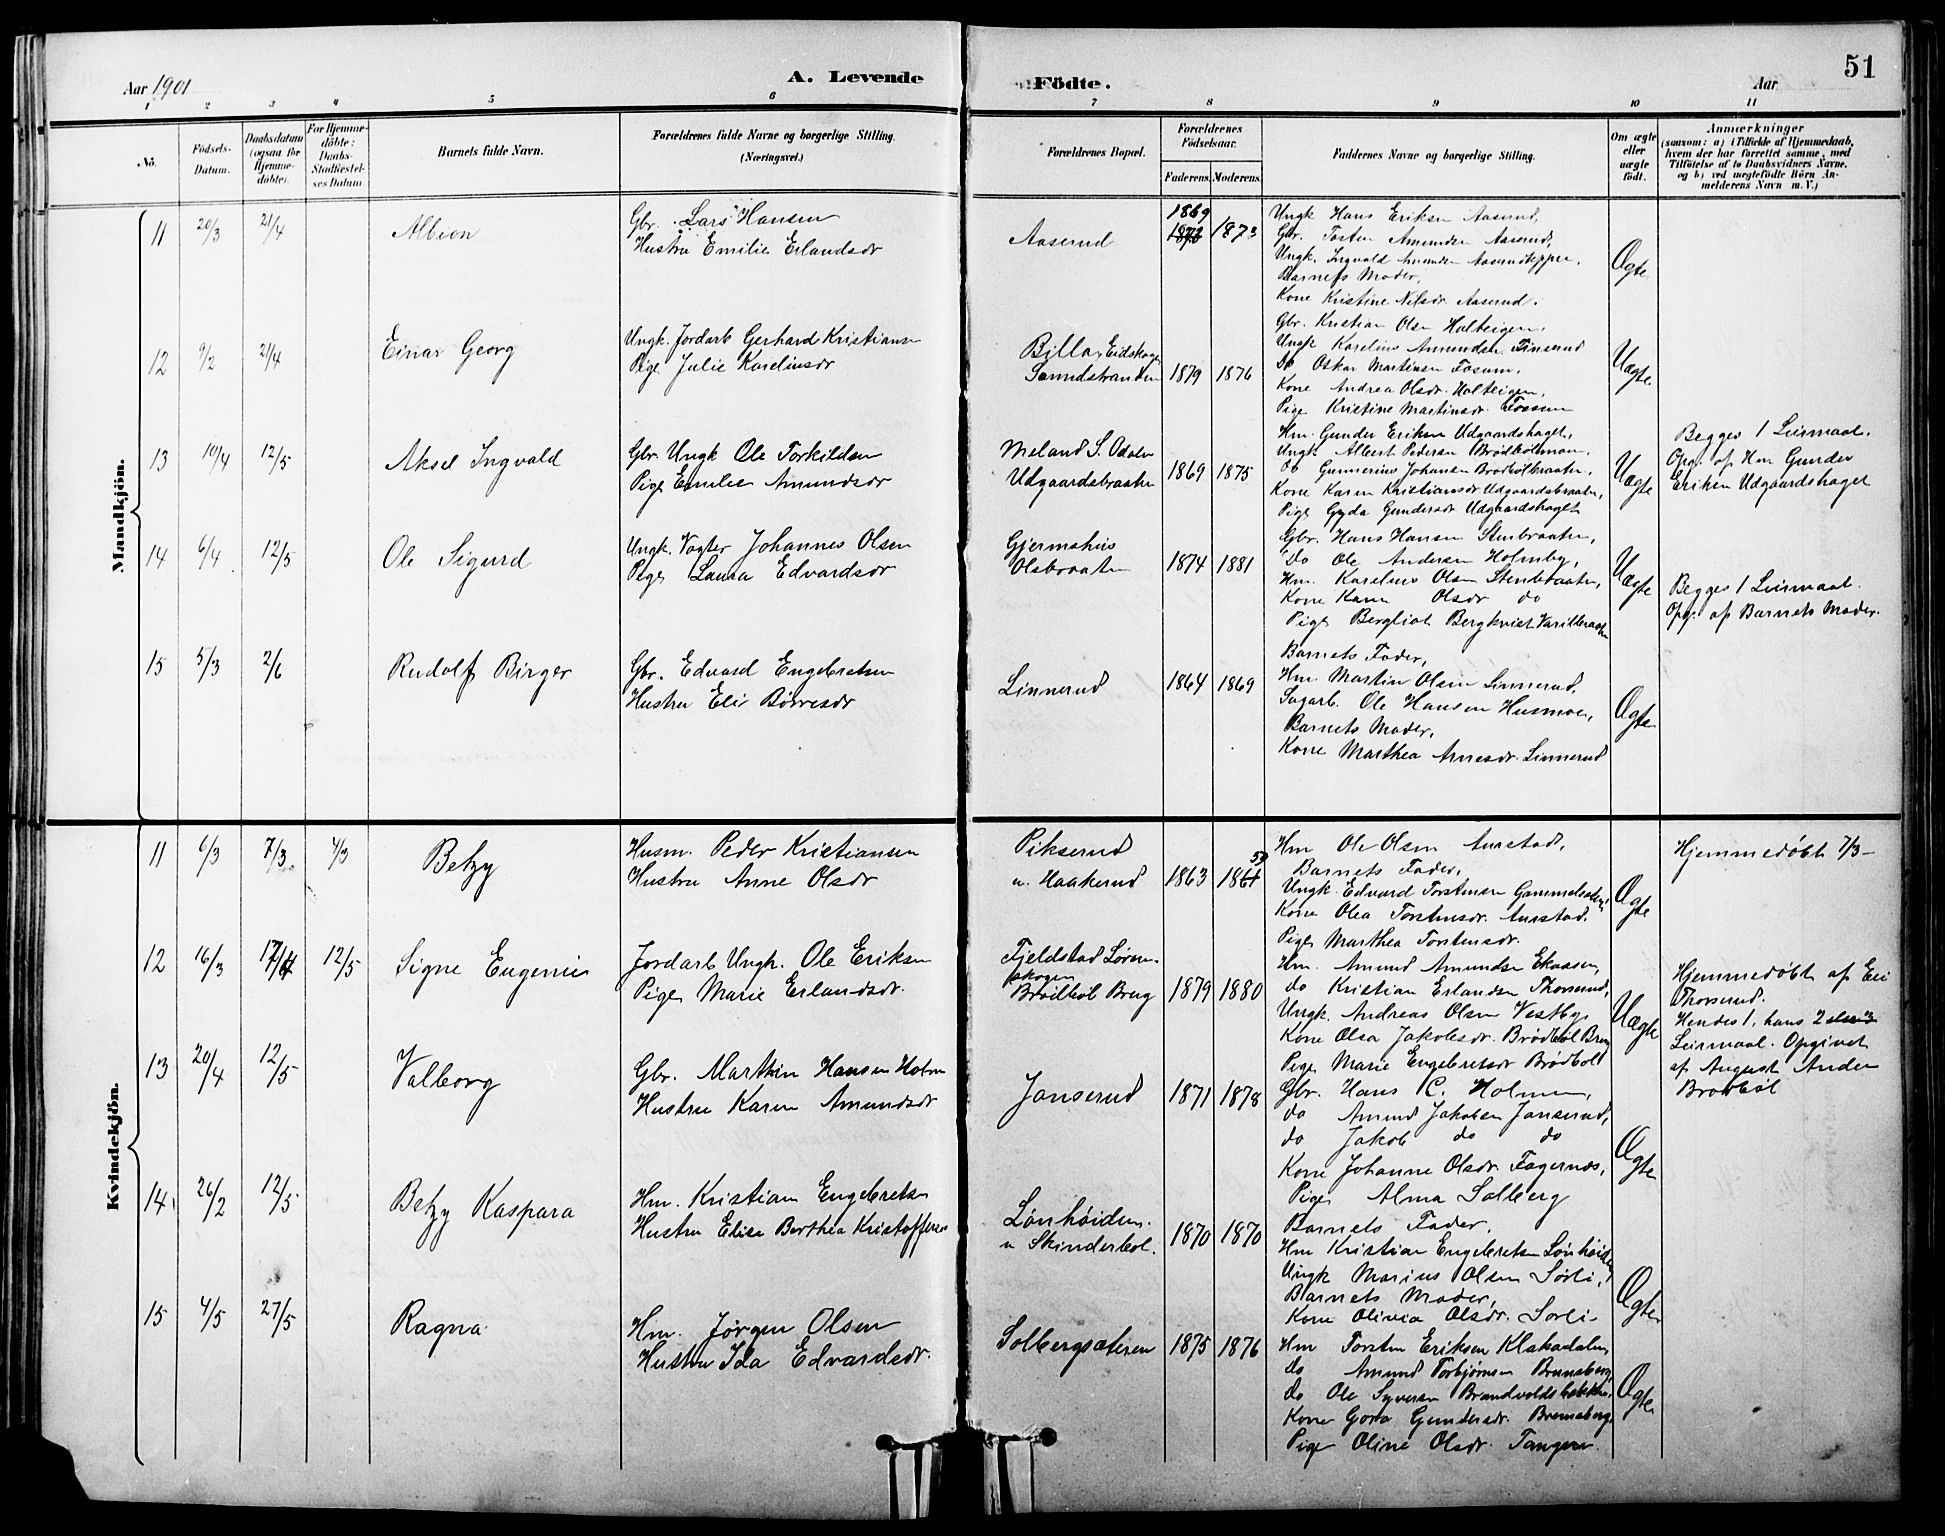 Aar 1901
A. Levende
Fødte.
Aar
51
1 2 3 4 5 6 7 8 9 10 11
No.
Fødsels-Datum.
Daabsdatum (ogsaa for Hjemmedøbte).
For Hjemmedøbte: Daabs-Stadfæstelses Datum
Barnets fulde Navn.
Forældrenes fulde Navne og borgerlige Stilling.
(Næringsvei.)
Forældrenes Bopæl.
Forældrenes Fødselsaar.
Faderens. Moderens.
Faddernes Navne og borgerlige Stilling.
Om ægte eller uægte født.
Anmærkninger
(saasom: a) i Tilfælde af Hjemmedaab, hvem der har forrettet samme, med Tilføielse af to Daabsvidners Navne, og b) ved uegtefødte Børn Anmelderens Navn m. V.)
Mandkjøn.
11 20/3 21/4 Albion
Gbr. Lars Hansen
Hustru Emilie Erlandsdr
Aaserud
1869
1872 1873
Ungk Hans Eriksen Aaserud,
Gbr. Tosten Amundsen Aaserud,
Ungk. Ingvald Amundsen Aaserudteppen,
Barnets Moder,
Kone Kristine Nilsdr. Aaserud.
Ægte
12 9/2 21/4 Einar Georg
Ungk. Jordarb Gerhard Kristiansen
Pige Julie Karelinsdr
Billa, Eidskogen
Sandstranden
1879 1876
Gbr. Kristian Olsen Holteigen,
Ungk Karelius Amundsen Finserud
Do Oskar Martinsen Fosum,
Kone Andrea Olsdr. Holteigen,
Pige Kristine Martinsdr. Fossum
Uægte
13 10/4 12/5 Aksel Ingvald
Gbr. Ungk Ole Torkildsen
Pige Emilie Amundsdr
Meland S. Odalen
Udgaardsbraaten
1869 1875
Hm. Gunder Eriksen Udgaardshaget,
Ungk Albert Pedersen Brødbølmoen,
Do Gunnerius Johansen Brødbølbraaten,
Kone Karen Kristiansdr Udgaardsbraaten,
Pige Gyda Gundersdr Udgaardshaget
Uægte
Begges 1 Leiermaal.
Opg. af Hm Gunder
Eriksen Udgaardshaget
14 6/4 12/5 Ole Sigurd
Ungk. Vogter Johannes Olsen
Pige Laura Edvardsdr
Gjermshus
Olsbraaten
1874 1881
Gbr. Hans Hansen Stenbraaten,
do Ole Andersen Holmby,
Hm. Karelius Olsen Stenbraaten,
Kone Karen Olsdr do
Pige Bergliot Bergkvist
Uægte
Begges 1 Leiermaal.
Opg. af Barnets Moder.
15 5/3 2/6 Rudolf Birger
Gbr. Edvard Engebretsen
Hustru Eli Børresdr
Linnerud
1864 1869
Barnets Fader,
Hm. Martin Olsen Linnerud,
Sagarb. Ole Hansen Husmoen,
Barnets Moder,
Kone Marthea Arnesdr. Linnerud
Ægte
Kvindekjøn.
11 6/3 7/3 4/3 Betzy
Husm. Peder Kristiansen
Hustru Anne Olsdr
Pikserud
u. Haakerud
59
1863 1861
Hm Ole Olsen Aurstad,
Barnets Fader,
Ungk. Edvard Torstensen
Kone Olea Torstensdr. Aurstad,
Pige Marthea Torstensdr.
Ægte
Hjemmedøbt 7/3 –
12 16/3 17/4 12/5 Signe Eugenie
Jordarb Ungk. Ole Eriksen
Pige Marie Erlandsdr.
Fjeldstad Løren-
skogen
Brødbøl Brug
1879 1880
Hm. Amund Amundsen Ekaasen,
do Kristian Erlandsen Thorserud,
Ungk. Andreas Olsen Vestby,
Kone Olea Jakobsdr. Brødbøl Brug
Pige Marie Engebretsdr Brødbøl
Uægte
Hjemmedøbt af Eri
Thorserud.
Hendes 1, hans 2
Leiermaal. Opgivet
af August Anders
Brødbøl
13 20/4 12/5 Valborg
Gbr. Marthin Hansen Holm
Hustru Karen Amundsdr
Janserud
1871 1878
Gbr. Hans C. Holmen,
do Amund Jakobsen Janserud,
do Jakob do do
Kone Johanne Olsdr. Fagernæs,
Pige Alma Solberg
Ægte
14 26/2 12/5 Betzy Kaspara
Hm. Kristian Engebretsen
Hustru Elise Berthea Kristoffersdr
Lønhøiden.
u Skinderbøl.
1870 1870
Barnets Fader,
Hm Kristian Engebretsen Lønhøiden,
Ungk Marius Olsen Sørli,
Barnets Moder,
Kone Olivia Olsdr. Sørli.
Ægte
15 4/5 27/5 Ragna
Hm. Jørgen Olsen
Hustru Ida Edvardsdr.
Solbergsæteren
1875 1876
Hm Torsten Eriksen Klakadalen,
do Amund Torbjørnsen Brennaberg,
do Ole Syversen Brandvoldsbakken,
Kone Gora Gundersdr. Brennaberg,
Pige Oline Olsdr. Tangen.
Ægte